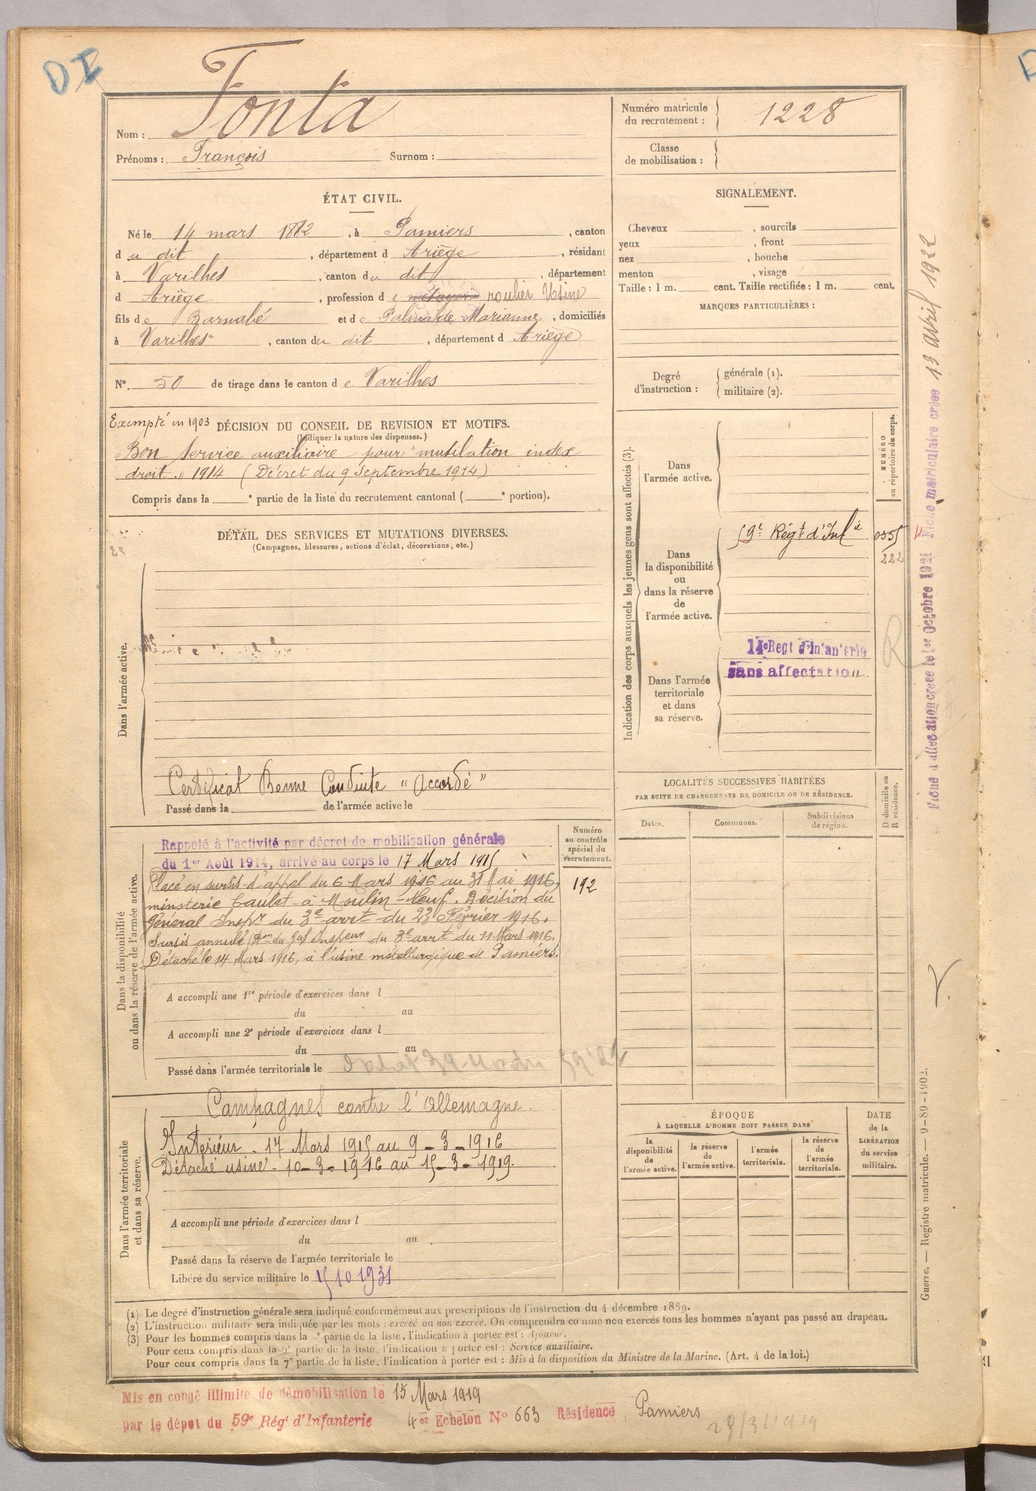 DI
Nom : Fonta
Prénoms : François Surnom :
Numéro matricule du recrutement : 1228
Classe de mobilisation :
ÉTAT CIVIL.
Né le 14 mars 1882, à Pamiers, canton
d u dit, département d Ariège, résidant
à Varilhes, canton du dit, département
d Ariège, profession d e roulier Usine
fils de Barnabé et de Marianne, domiciliés
à Varilhes, canton du dit, département d Ariège
N° 50 de tirage dans le canton d e Varilhes
SIGNALEMENT.
Cheveux , sourcils
yeux , front
nez , bouche
menton , visage
Taille : 1 m. cent. Taille rectifiée : 1 m. cent.
MARQUES PARTICULIÈRES :
Degré d'instruction : générale (1).
militaire (2).
Exempté en 1903 DÉCISION DU CONSEIL DE REVISION ET MOTIFS.
(Indiquer la nature des dispenses.)
Bon Service auxiliaire pour mutilation index
droit. 1914 (Décret du 9 Septembre 1914)
Compris dans la e partie de la liste du recrutement cantonal ( e portion).
DÉTAIL DES SERVICES ET MUTATIONS DIVERSES.
(Campagnes, blessures, actions d'éclat, décorations, etc.)
Dans l'armée active.
Certificat Bonne Conduite "Accordé"
Passé dans la de l'armée active le
Numéro au contrôle spécial du recrutement.
192
Dans la disponibilité ou dans la réserve de l'armée active.
Rappelé à l'activité par décret de mobilisation générale
du 1er Août 1914, arrivé au corps le 17 Mars 1915
Placé en sursis d'appel du 6 Mars 1916 au 31 Mai 1916,
minoterie Caulet à Moulin-Neuf. Décision du
Général Inspr du 3e arrt du 23 Février 1916.
Sursis annulé du Gal Inspeur du 3e arrt du 11 Mars 1916.
Détaché le 14 Mars 1916, à l'usine métallurgique de Pamiers.
A accompli une 1re période d'exercices dans l
du au
A accompli une 2e période d'exercices dans l
du au
Passé dans l'armée territoriale le
Dans l'armée territoriale et dans sa réserve.
Campagnes contre l'Allemagne.
Intérieur. 17 Mars 1915 au 9-3-1916
Détaché usine. 10-3-1916 au 15-3-1919.
A accompli une période d'exercices dans l
du au
Passé dans la réserve de l'armée territoriale le
Libéré du service militaire le 15 10 1931
Indication des corps auxquels les jeunes gens sont affectés (3).
NUMÉRO au répertoire du corps.
Dans l'armée active.
Dans la disponibilité ou dans la réserve de l'armée active.
59e Régt d'Infie
222
Dans l'armée territoriale et dans sa réserve.
14e Regt d'infanterie
sans affectation
LOCALITÉS SUCCESSIVES HABITÉES
PAR SUITE DE CHANGEMENTS DE DOMICILE OU DE RÉSIDENCE.
Dates. Communes. Subdivisions de région. D domicile ou R résidence.
ÉPOQUE
À LAQUELLE L'HOMME DOIT PASSER DANS
la disponibilité de l'armée active. la réserve de l'armée active. l'armée territoriale. la réserve de l'armée territoriale.
DATE de la LIBÉRATION du service militaire.
Fiche d'affectation créée le 1er Octobre 1921 Fiche matriculaire créée 13 avril 1922
R
Guerre. — Registre matricule. — 9-89-1902.
(1) Le degré d'instruction générale sera indiqué conformément aux prescriptions de l'instruction du 4 décembre 1889.
(2) L'instruction militaire sera indiquée par les mots : exercé ou non exercé. On comprendra comme non exercés tous les hommes n'ayant pas passé au drapeau.
(3) Pour les hommes compris dans la e partie de la liste, l'indication à porter est : Ajourné.
Pour ceux compris dans la e partie de la liste, l'indication à porter est : Service auxiliaire.
Pour ceux compris dans la 7e partie de la liste, l'indication à porter est : Mis à la disposition du Ministre de la Marine. (Art. 4 de la loi.)
Mis en congé illimité de démobilisation le 15 Mars 1919
par le dépot du 59e Régt d'Infanterie 4er Echelon No 663 Résidence Pamiers